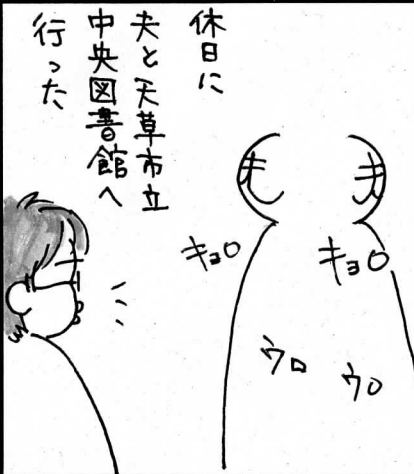 休日に
夫と天草市立
中央図書館へ
行った
夫
夫
キョロ
キョロ
ウロ
ウロ